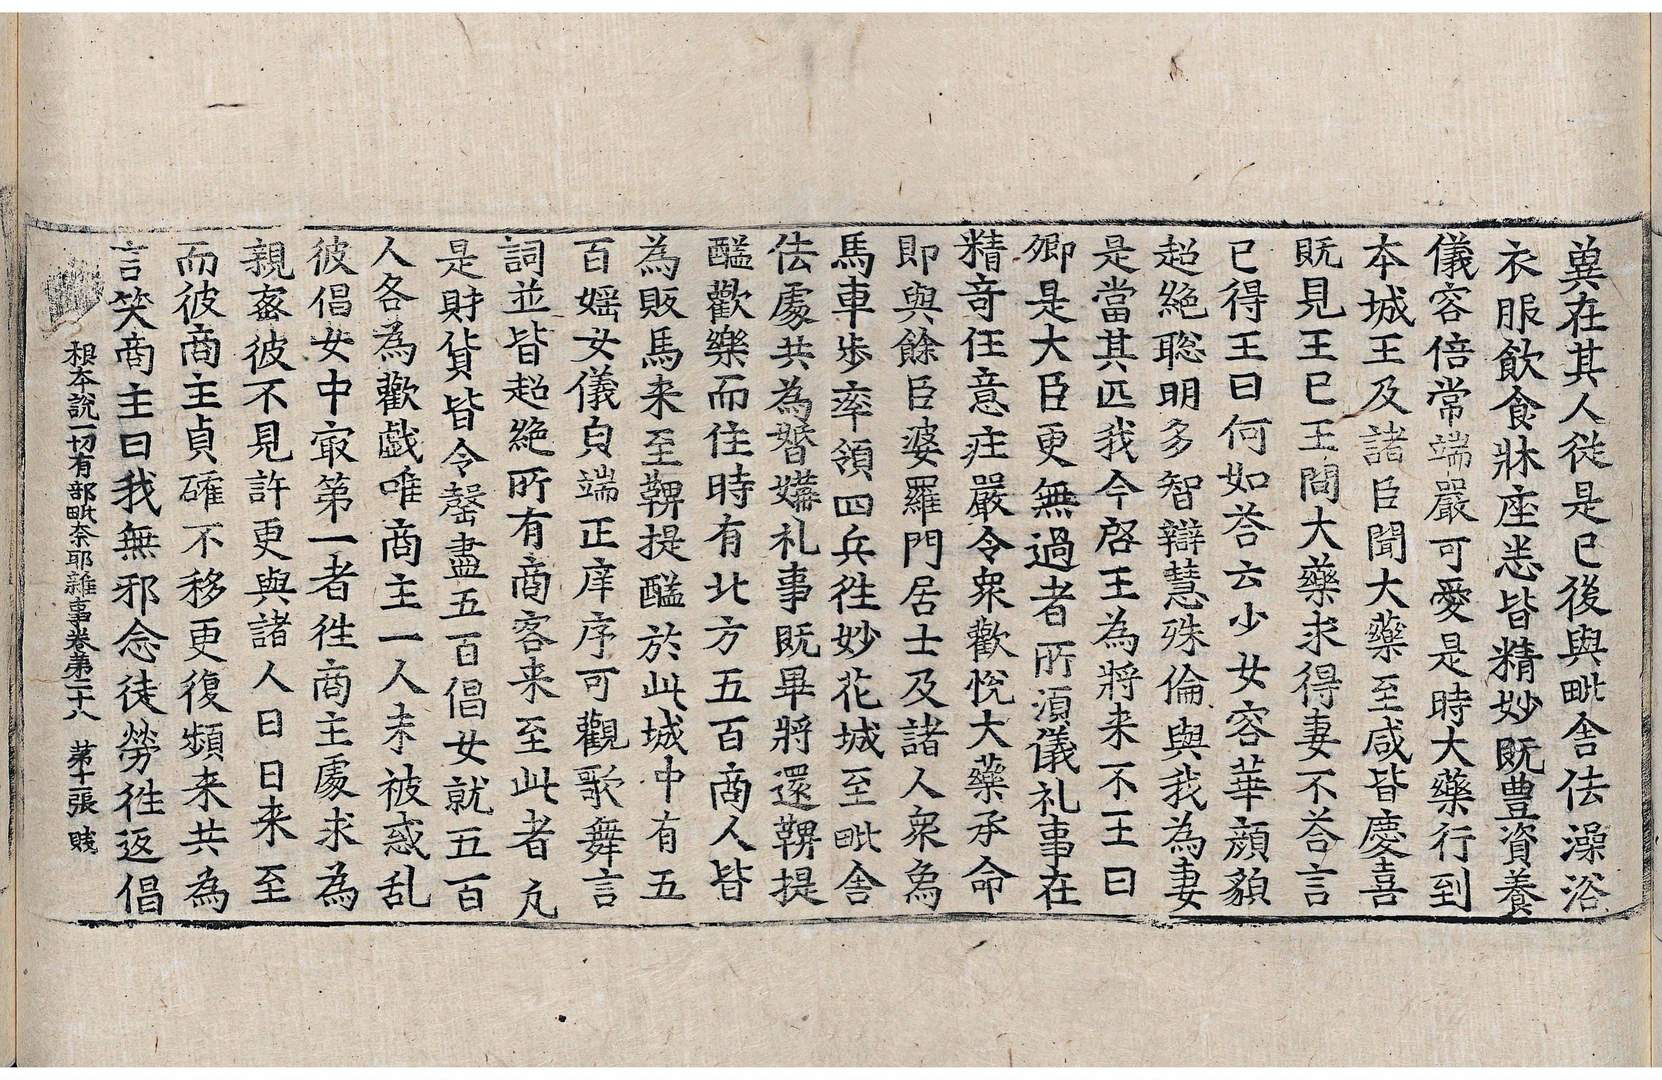 糞在其人從是已後與毗舍佉澡浴
衣服飲食牀座悉皆精妙既豊資養
儀容倍常端嚴可愛是時大藥行到
本城王及諸臣聞大藥至咸皆慶喜
既見王已王問大藥求得妻不荅言
已得王曰何如荅云少女容華顔䫉
超絶聦明多智辯慧殊倫與我為妻
是當其匹我今啓王為將来不王曰
卿是大臣更無過者所湏儀礼事在
精竒任意庄嚴令衆歡悅大藥承命
即與餘臣婆羅門居士及諸人衆象
馬車步率領四兵徃妙花城至毗舍
佉處共為㛰媾礼事既畢將還鞞提
醯歡樂而住時有北方五百商人皆
為販馬来至鞞提醯於此城中有五
百婬女儀皃端正庠序可觀歌舞言
詞並皆超絶所有商客来至此者凢
是財貨皆令罄盡五百倡女就五百
人各為歡戱唯商主一人未被惑乱
彼倡女中㝡第一者徃商主處求為
親密彼不見許更與諸人日日来至
而彼商主貞確不移更復頻来共為
言笑商主曰我無邪念徒勞徃返倡
根本說一切有部毗奈耶雜事卷第二十八 第十一張 賤